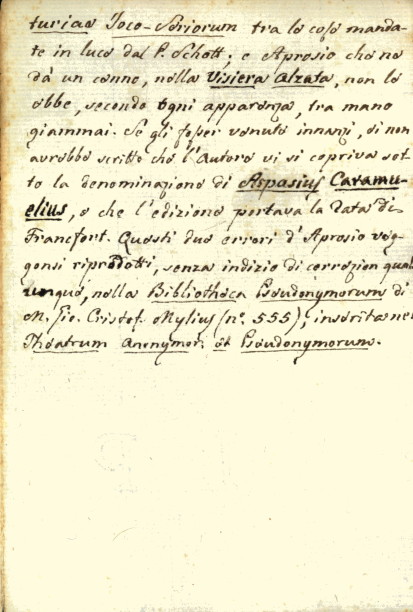 turiae Joco-Seriorum tra le cose manda-
te in luce dal P. Schott; e Aprosio che ne
dà un cenno, nella Visiera Alzata, non lo
ebbe, secondo ogni apparenza, tra mano
giammai. Se gli fosse venuto innanzi, ei non
avrebbe scritto che l'Autore vi si copriva sot-
to la denominazione di Aspasius Caramu-
elius, e che l'edizione portava la data di
Francfort. Questi due errori d'Aprosio veg-
gonsi riprodotti, senza indizio di correzion qual-
unque, nella Bibliotheca Pseudonymorum di
M. Gio. Cristof. Mylius (n.° 555), inserita nel
Theatrum Anonymor. et Pseudonymorum.